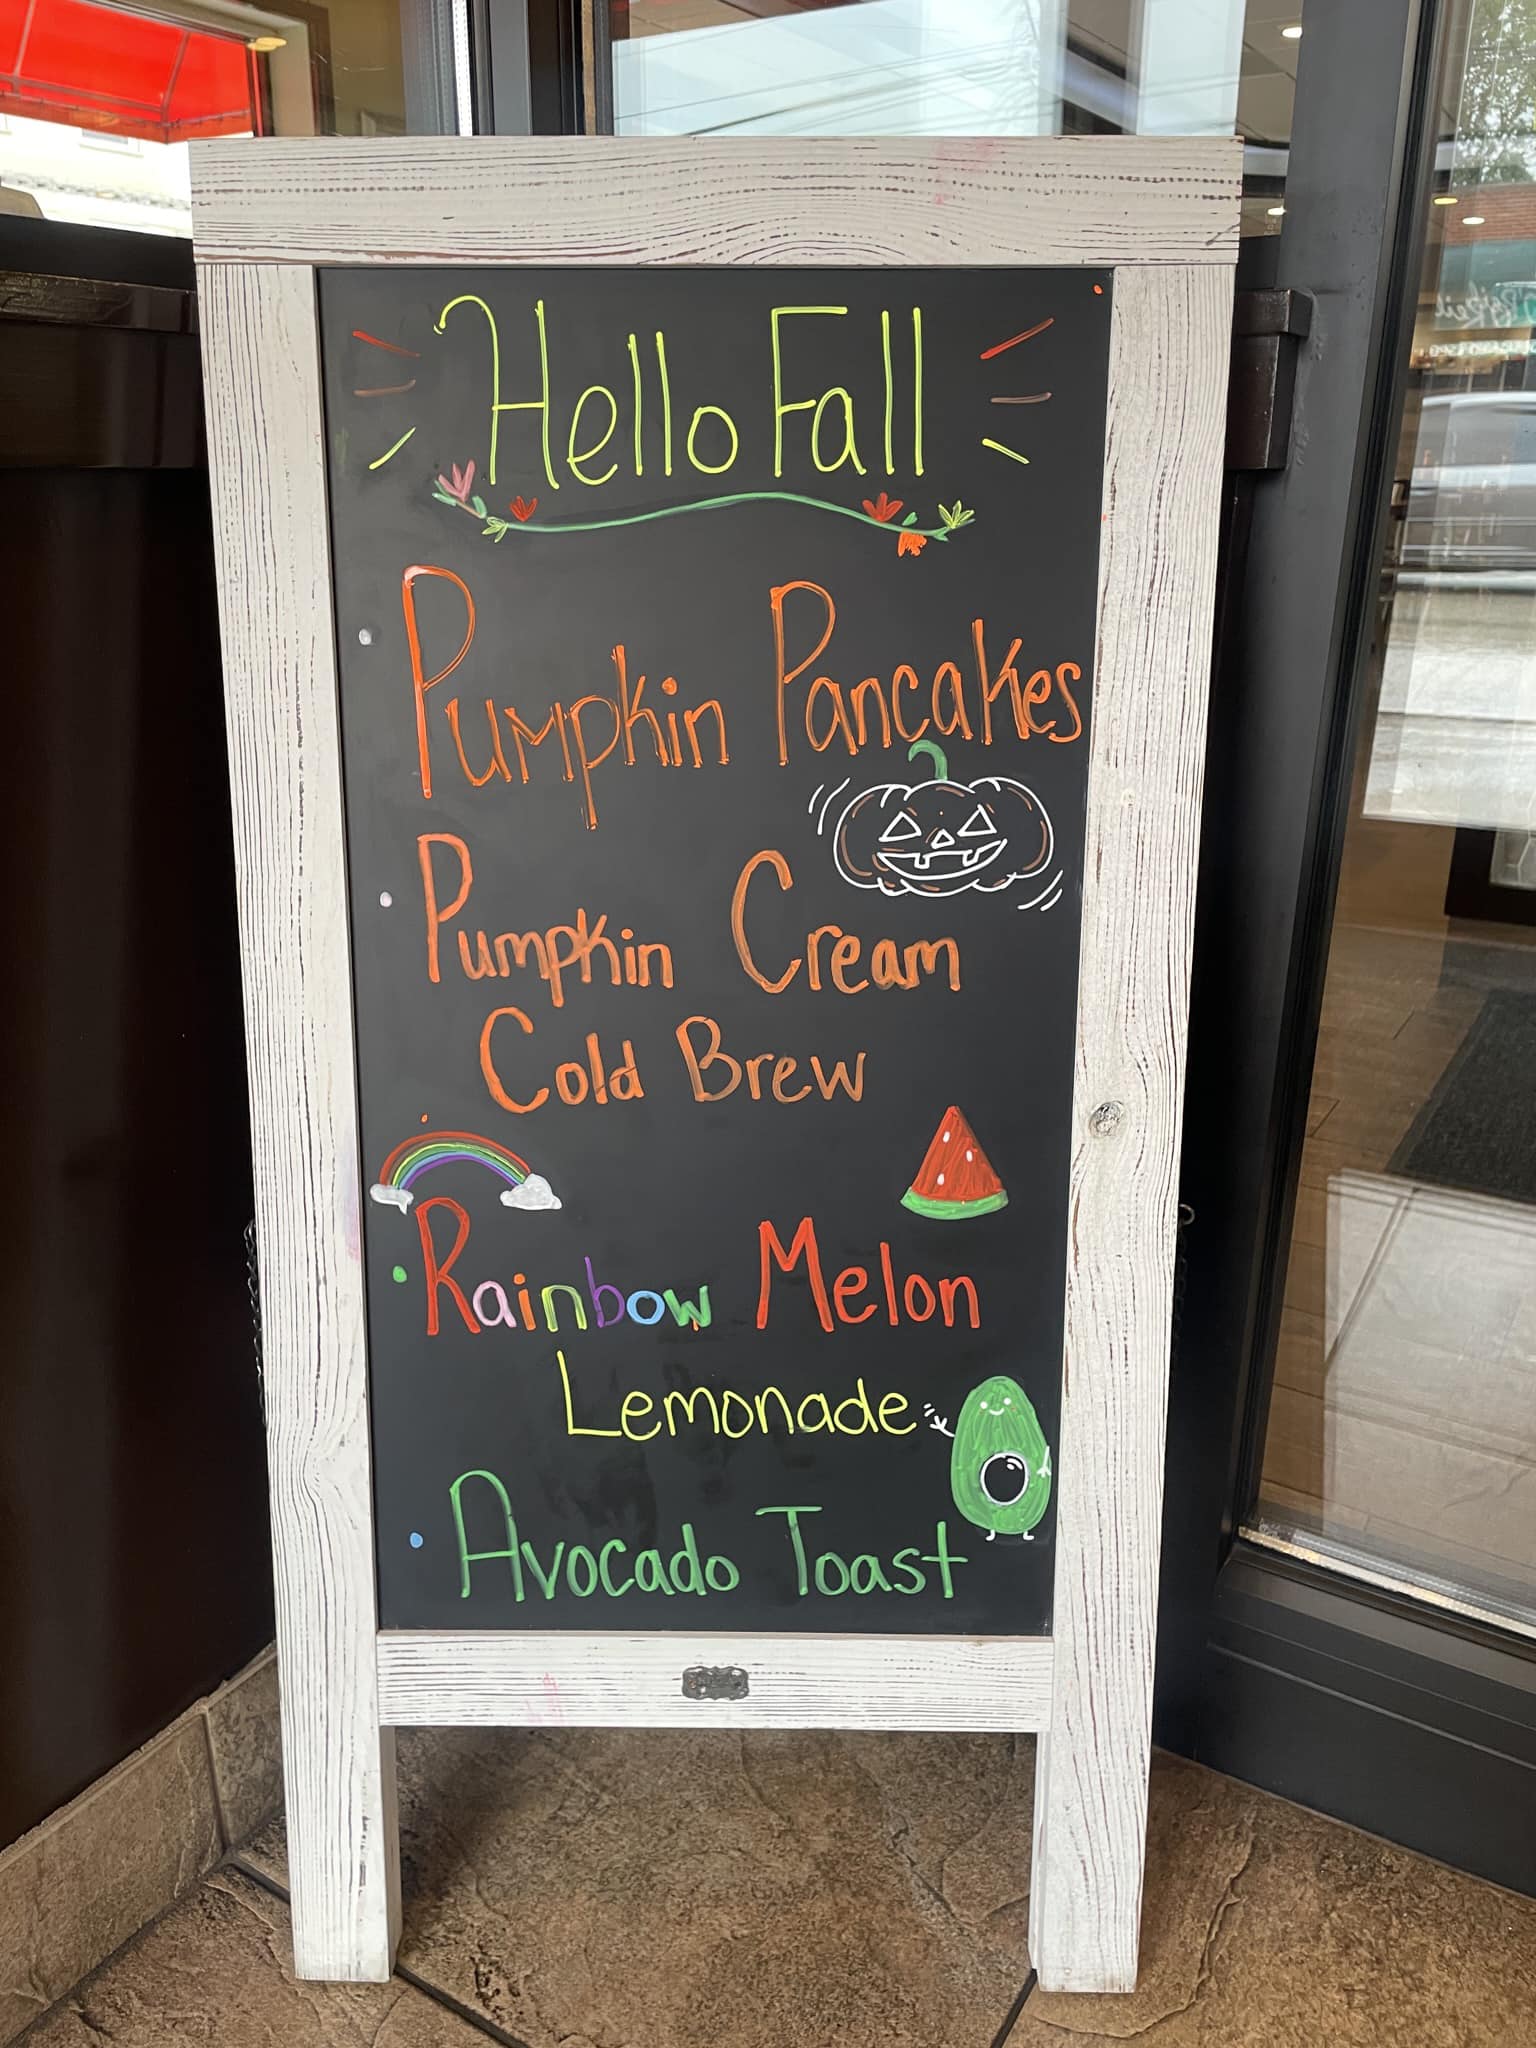 Hello Fall
Pumpkin Pancakes
Pumpkin Cream
Cold Brew
Rainbow Melon
Lemonade
Avocado Toast